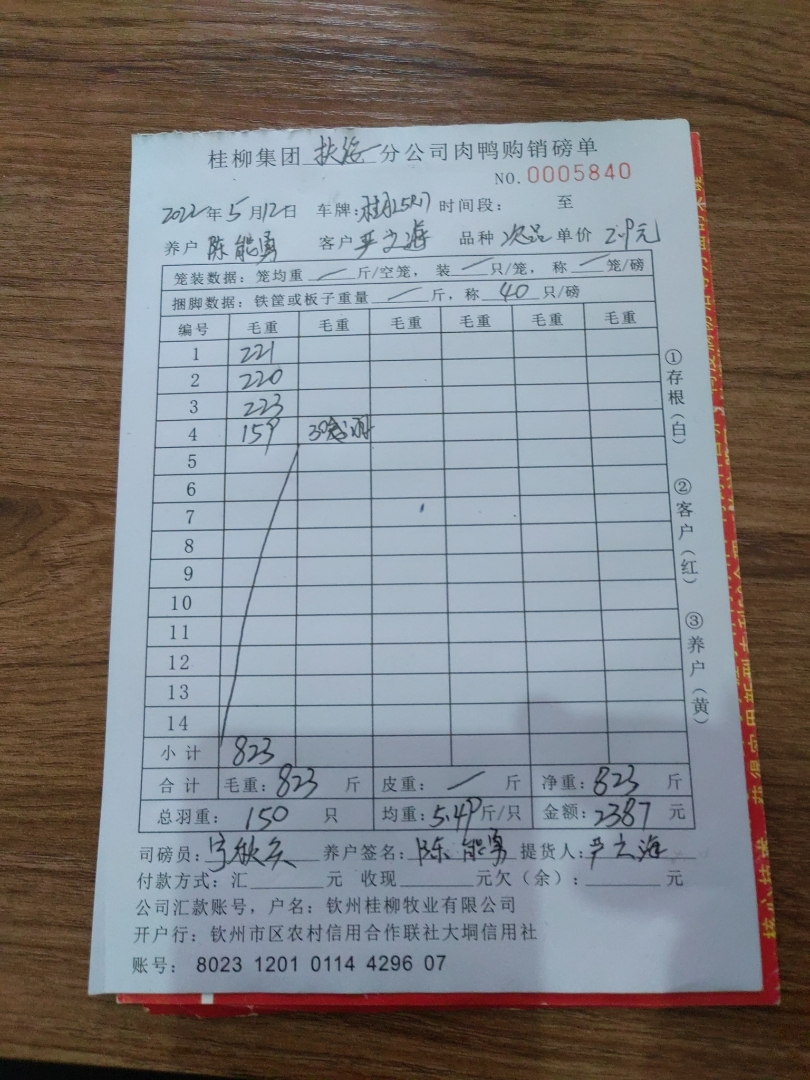 桂柳集团 扶绥 分公司肉鸭购销磅单
NO. 0005840
2022年5月12日 车牌: 时间段: 至
养户 陈能勇 客户 严之海 品种 次品 单价 2.9元
笼装数据: 笼均重 — 斤/空笼, 装 — 只/笼, 称 — 笼/磅
捆脚数据: 铁筐或板子重量 — 斤, 称 40 只/磅
编号 毛重 毛重 毛重 毛重 毛重 毛重
1 221
2 220
3 223
4 159 30
5
6
7
8
9
10
11
12
13
14
小计 823
合计 毛重: 823 斤 皮重: — 斤 净重: 823 斤
总羽重: 150 只 均重: 5.49 斤/只 金额: 2387 元
司磅员: 养户签名: 陈能勇 提货人: 严之海
付款方式: 汇 元 收现 元欠(余): 元
公司汇款账号, 户名: 钦州桂柳牧业有限公司
开户行: 钦州市区农村信用合作联社大垌信用社
账号: 8023 1201 0114 4296 07
①存根(白)
②客户(红)
③养户(黄)